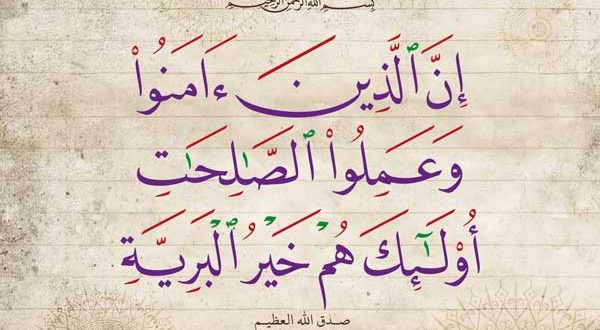 بِسْمِ اللهِ الرَّحْمٰنِ الرَّحِيمِ
إِنَّ ٱلَّذِينَ ءَامَنُوا۟
وَعَمِلُوا۟ ٱلصَّـٰلِحَـٰتِ
أُو۟لَـٰٓئِكَ هُمْ خَيْرُ ٱلْبَرِيَّةِ
صدق الله العظيم